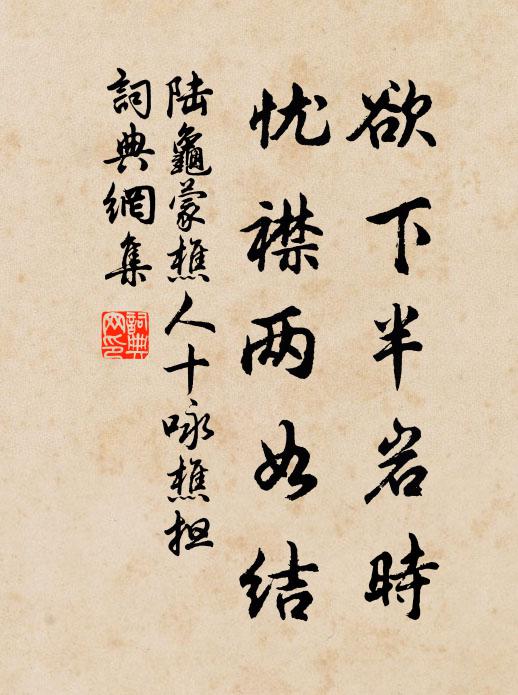 欲下半岩時
忧襟两如结
陆龜蒙樵人十咏樵担
詞典網集
詞典网印